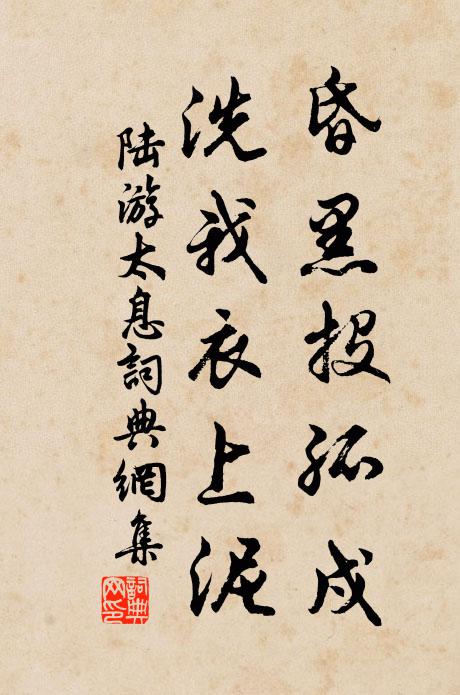 昏黑投孤戍
洗我衣上泥
陆游太息詞典網集
詞典網印